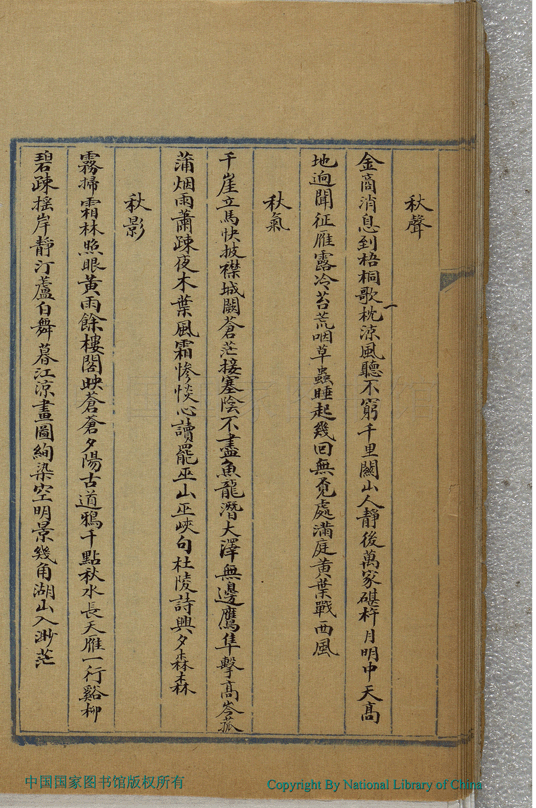 秋聲
金商消息到梧桐歌枕涼風聽不窮千里關山人靜後萬家碪杵月明中天高
地迥聞征雁露冷苔荒咽草蟲睡起幾回無覓處滿庭黃葉戰西風
秋氣
千崖立馬快披襟城闕蒼茫接塞陰不盡魚龍潛大澤無邊鷹隼擊高岑菰
蒲烟雨蕭疎夜木葉風霜慘惔心讀罷巫山巫峽句杜陵詩興夕森森
秋影
霧掃霜林照眼黃雨餘樓閣映蒼蒼夕陽古道鴉千點秋水長天雁一行谿柳
碧疎摇岸靜汀蘆白舞暮江涼畫圖絢染空明景幾角湖山入渺茫
中国国家图书馆版权所有
Copyright By National Library of China